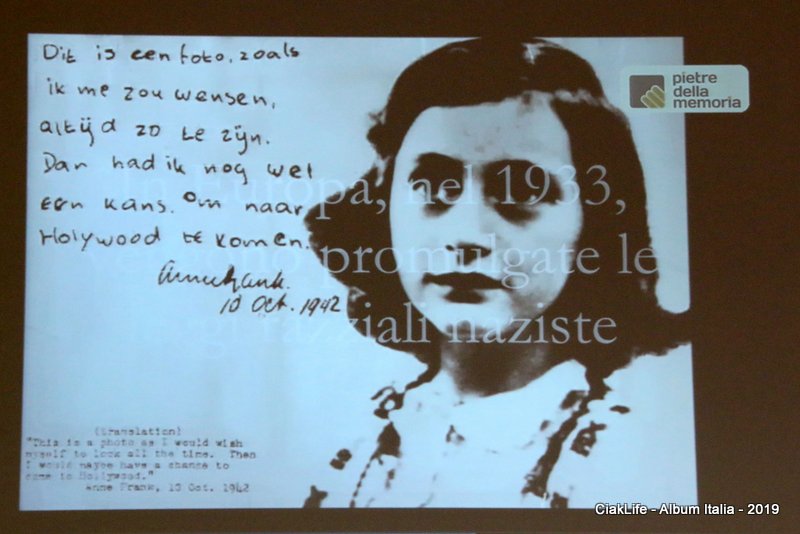 Dit is een foto, zoals
ik me zou wensen,
altijd zo te zijn.
Dan had ik nog wel
een kans, om naar
Holywood te komen.
AnneFrank.
10 Oct. 1942
pietre
della
memoria
In Europa, nel 1933,
vengono promulgate le
leggi razziali naziste
(translation)
"This is a photo as I would wish
myself to look all the time. Then
I would maybe have a chance to
come to Hollywood."
Anne Frank, 10 Oct. 1942
CiakLife - Album Italia - 2019